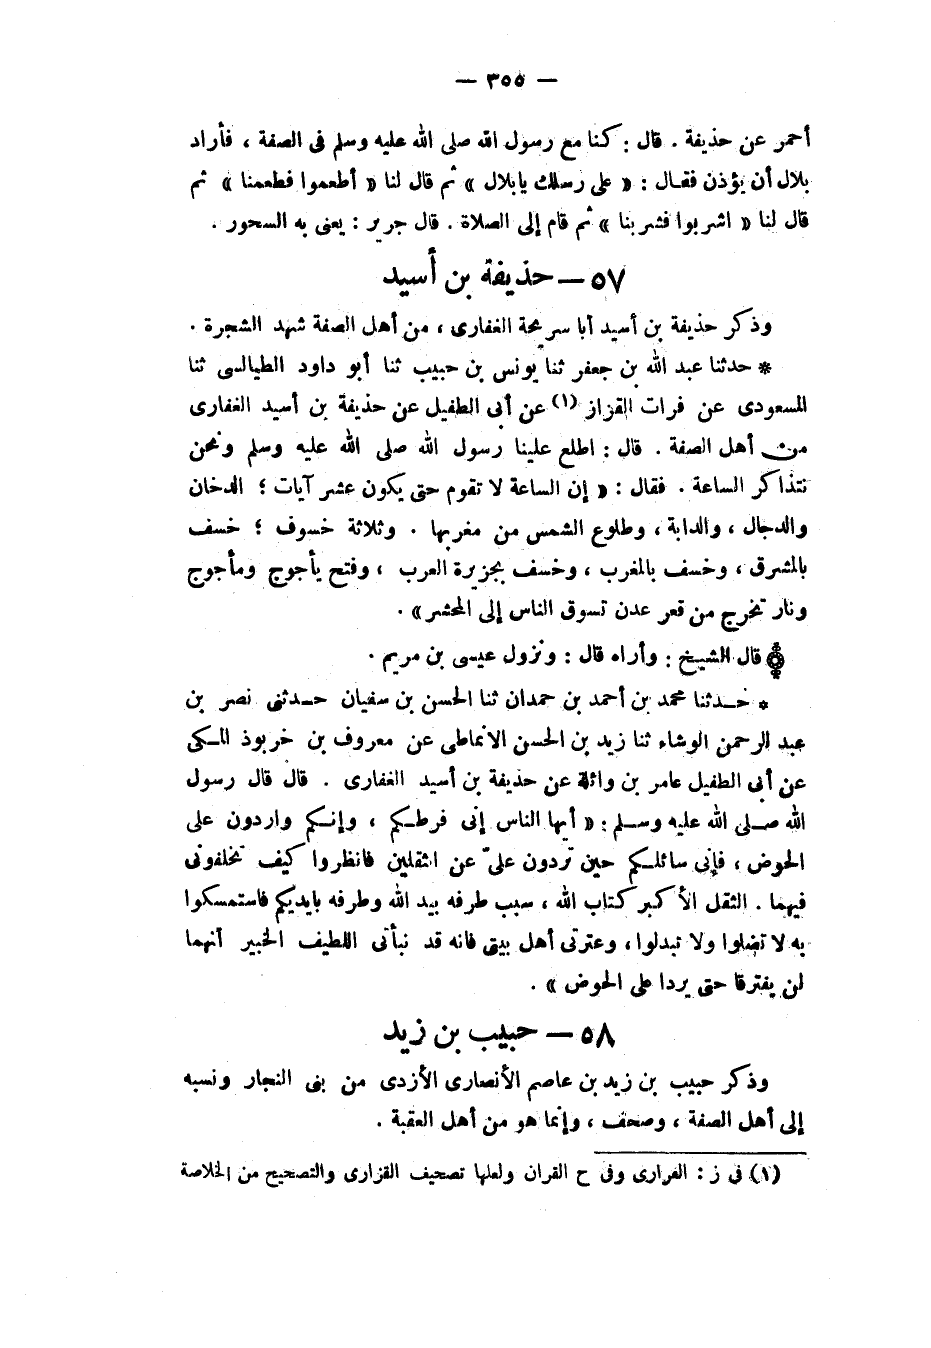 — ٣٥٥ —
أحمر عن حذيفة . قال : كنا مع رسول الله صلى الله عليه وسلم فى الصفة ، فأراد
بلال أن يؤذن فقال : « على رسلك يابلال » ثم قال لنا « أطعموا فطعمنا » ثم
قال لنا « اشربوا فشربنا » ثم قام إلى الصلاة . قال جرير : يعنى به السحور .
٥٧ — حذيفة بن أسيد
وذكر حذيفة بن أسيد أبا سريحة الغفارى ، من أهل الصفة شهد الشجرة .
* حدثنا عبد الله بن جعفر ثنا يونس بن حبيب ثنا أبو داود الطيالسى ثنا
المسعودى عن فرات القزاز (١) عن أبى الطفيل عن حذيفة بن أسيد الغفارى
من أهل الصفة . قال : اطلع علينا رسول الله صلى الله عليه وسلم ونحن
نتذاكر الساعة . فقال : « إن الساعة لا تقوم حتى يكون عشر آيات ؛ الدخان
والدجال ، والدابة ، وطلوع الشمس من مغربها . وثلاثة خسوف ؛ خسف
بالمشرق ، وخسف بالمغرب ، وخسف بجزيرة العرب ، وفتح يأجوج ومأجوج
ونار تخرج من قعر عدن تسوق الناس إلى المحشر » .
قال الشيخ : وأراه قال : ونزول عيسى بن مريم .
* حدثنا محمد بن أحمد بن حمدان ثنا الحسن بن سفيان حدثنى نصر بن
عبد الرحمن الوشاء ثنا زيد بن الحسن الانماطى عن معروف بن خربوذ المكى
عن أبى الطفيل عامر بن واثلة عن حذيفة بن أسيد الغفارى . قال قال رسول
الله صلى الله عليه وسلم : « أيها الناس إنى فرطكم ، وإنكم واردون على
الحوض ، فإنى سائلكم حين تردون علىّ عن الثقلين فانظروا كيف تخلفونى
فيهما . الثقل الأكبر كتاب الله ، سبب طرفه بيد الله وطرفه بايديكم فاستمسكوا
به لا تضلوا ولا تبدلوا ، وعترتى أهل بيتى فانه قد نبأنى اللطيف الخبير أنهما
لن يفترقا حتى يردا على الحوض » .
٥٨ — حبيب بن زيد
وذكر حبيب بن زيد بن عاصم الأنصارى الأزدى من بنى النجار ونسبه
إلى أهل الصفة ، وصحف ، وإنما هو من أهل العقبة .
(١) فى ز : الفرارى وفى ح القران ولعلها تصحيف القزارى والتصحيح من الخلاصة